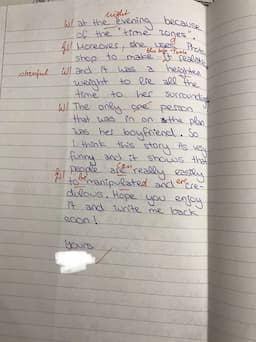 night
W/ at the evening because
of the "time zones".
Moreover, she used Photo
shop to make it realistic
W/ and it was a heighten
weight to lie all the
time to her surrounding
W/ The only one person
that was in on the plan
was her boyfriend. So
I think this story is very
funny and it shows that
people are really easily
to manipulated and cre-
dulous. Hope you enjoy
it and write me back
soon!
Yours